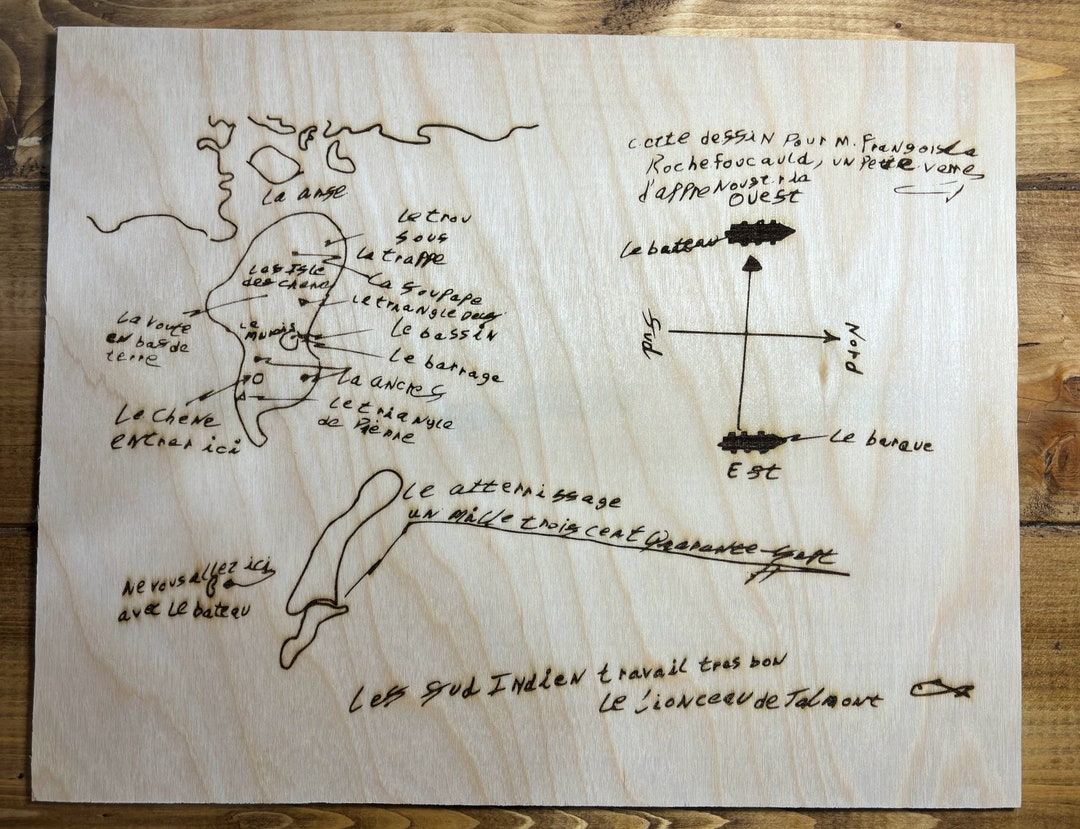 cette dessin pour M. Françoisla
Rochefoucauld, un petie verre
d'appre Noustria
Ouest
La anse
Le trou
sous
La trappe
Las isle
des chene
La Soupape
Le triangle Deux
La route
en bas de
terre
Le
Marais
Le bassin
Le barrage
La ancres
Le triangle
de Pierre
Le Chene
entrer ici
Le bateau
Sud
Nord
Le barque
Est
Le atterrissage
un mille trois cent Quarante-Sept
Ne vous allez ici
avec Le bateau
Les Sud Indien travail tres bon
Le Lionceau de Talmont